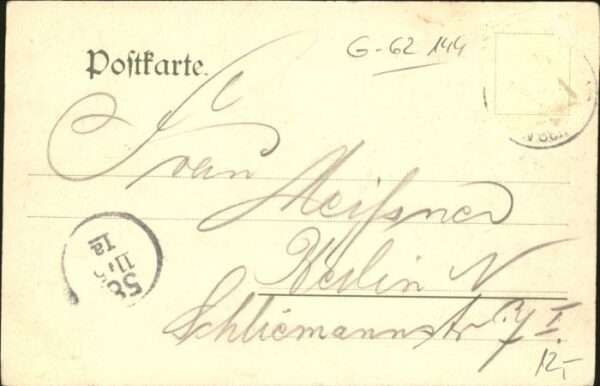 Postkarte.
G-62 144
Frau Meißner
Berlin N
Schliemannstr. 7 I
12,-
58
Ia